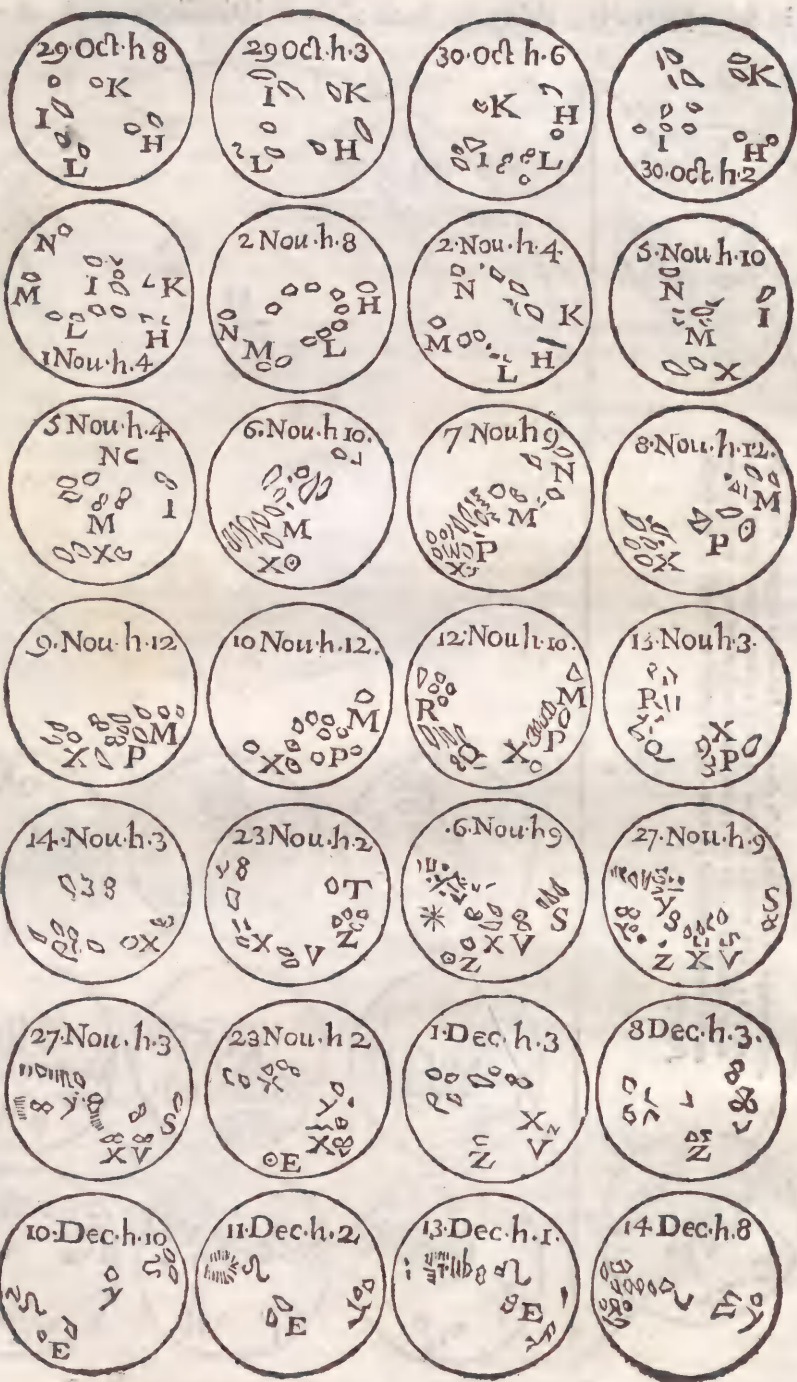 29·Oct·h 8
K
I
H
L
29 Oct·h·3
I K
L H
30·Oct h·6
K H
I L
K
I H
30·Oct·h·2
N
M I K
L H
1 Nou·h·4
2 Nou·h·8
H
N M L
2·Nou·h·4
N K
M L H
5·Nou h·10
N
I
M
X
5 Nou·h·4
N
M I
X
6·Nou·h 10.
M
X
7 Nou h 9
N
M
P
X
8·Nou·h·12.
M
P
X
9·Nou·h·12
M
X P
10 Nou·h·12.
M
X P
12·Nou h·10.
M
R
P
Q X
13·Nou h·3·
R
X
Q P
14·Nou·h·3
X
23 Nou·h·2
T
X V Z
·6·Nou h 9
S
X V
Z
27·Nou·h·9
Y S
S
Z X V
27·Nou·h·3
Y S
X V
23 Nou·h 2
X
Y
X
E
1·Dec·h·3
X
Z V
8 Dec·h·3·
Z
10·Dec·h·10
Y
E
11·Dec·h·2
E
Y
13·Dec·h·1·
E
14·Dec·h·8